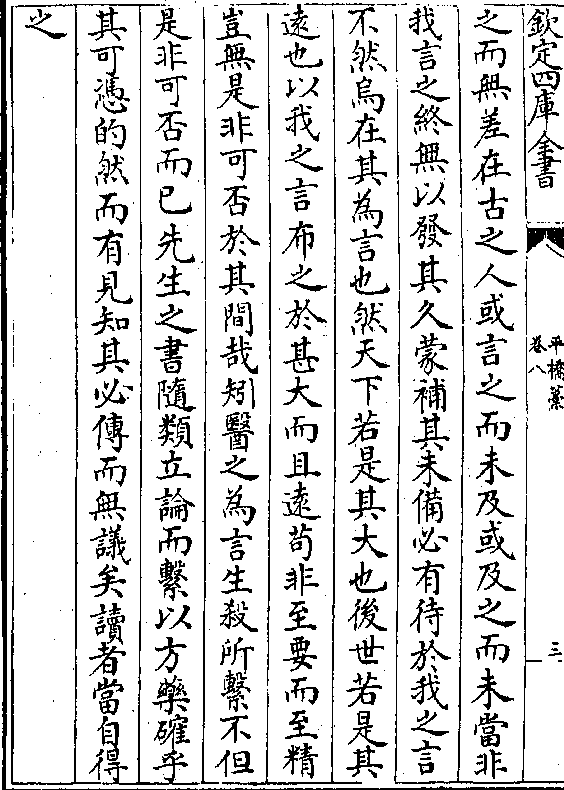 欽定四庫全書
平橋藁
卷八
三
之而無差在古之人或言之而未及或及之而未當非
我言之終無以發其久蒙補其未備必有待於我之言
不然烏在其為言也然天下若是其大也後世若是其
遠也以我之言布之於甚大而且遠苟非至要而至精
豈無是非可否於其間哉矧醫之為言生殺所繫不但
是非可否而已先生之書隨類立論而繫以方藥確乎
其可憑的然而有見知其必傳而無議矣讀者當自得
之